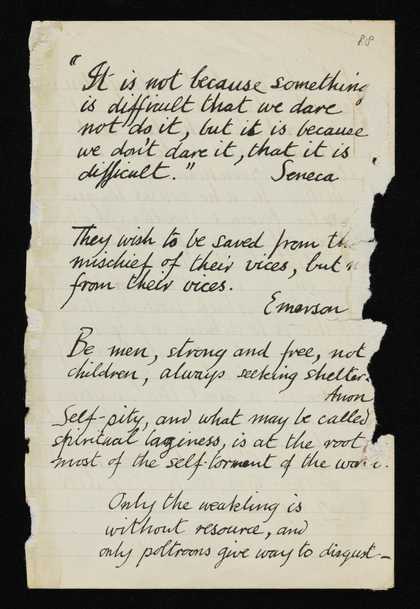 88
"It is not because something
is difficult that we dare
not do it, but it is because
we don't dare it, that it is
difficult." Seneca
They wish to be saved from the
mischief of their vices, but n
from their vices.
Emerson
Be men, strong and free, not
children, always seeking shelter.
Anon
Self-pity, and what may be called
spiritual laziness, is at the root
most of the self-torment of the
Only the weakling is
without resource, and
only poltroons give way to disgust_